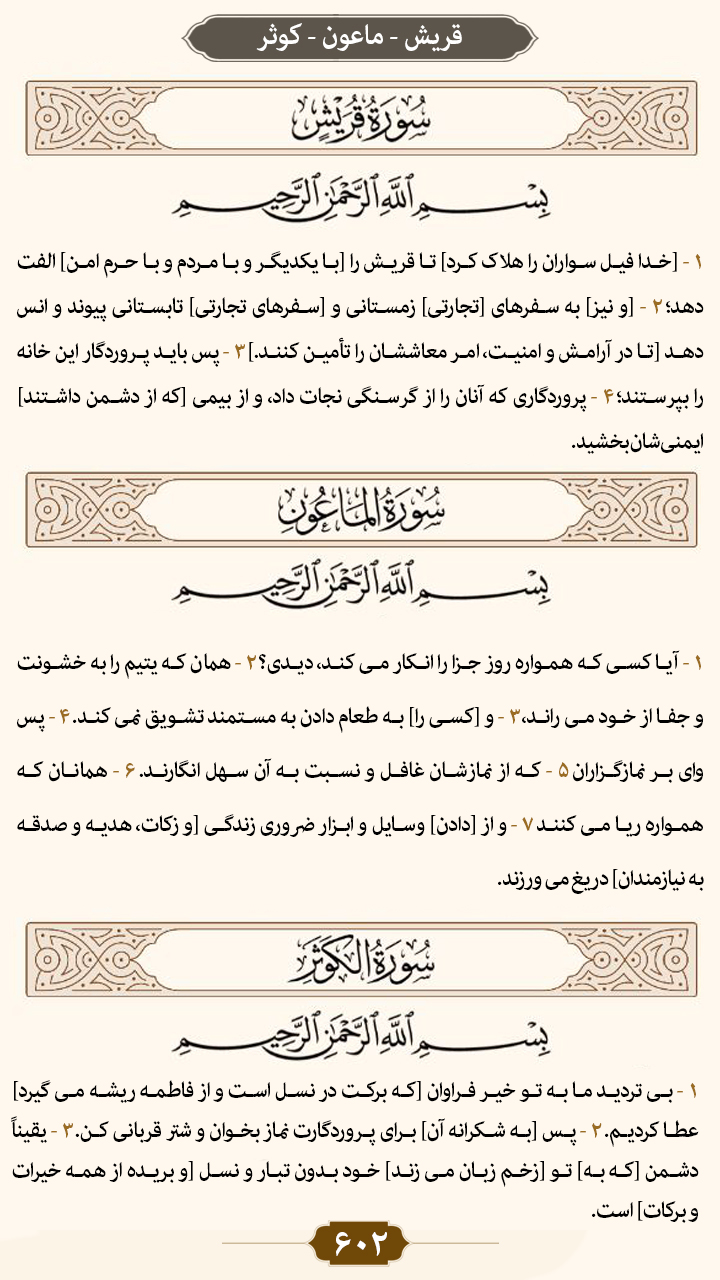 قریش - ماعون - کوثر
سُورَةُ قُرَيْشٍ
بِسْمِ اللَّهِ الرَّحْمَٰنِ الرَّحِيمِ
۱ - [خدا فیل سواران را هلاک کرد] تا قریش را [با یکدیگر و با مردم و با حرم امن] الفت
دهد؛ ۲ - [و نیز] به سفرهای [تجارتی] زمستانی و [سفرهای تجارتی] تابستانی پیوند و انس
دهد [تا در آرامش و امنیت، امر معاششان را تأمین کنند.] ۳ - پس باید پروردگار این خانه
را بپرستند؛ ۴ - پروردگاری که آنان را از گرسنگی نجات داد، و از بیمی [که از دشمن داشتند]
ایمنی‌شان‌بخشید.
سُورَةُ الْمَاعُونِ
بِسْمِ اللَّهِ الرَّحْمَٰنِ الرَّحِيمِ
۱ - آیا کسی که همواره روز جزا را انکار می کند، دیدی؟ ۲ - همان که یتیم را به خشونت
و جفا از خود می راند، ۳ - و [کسی را] به طعام دادن به مستمند تشویق نمی کند. ۴ - پس
وای بر نمازگزاران ۵ - که از نمازشان غافل و نسبت به آن سهل انگارند. ۶ - همانان که
همواره ریا می کنند ۷ - و از [دادن] وسایل و ابزار ضروری زندگی [و زکات، هدیه و صدقه
به نیازمندان] دریغ می ورزند.
سُورَةُ الْكَوْثَرِ
بِسْمِ اللَّهِ الرَّحْمَٰنِ الرَّحِيمِ
۱ - بی تردید ما به تو خیر فراوان [که برکت در نسل است و از فاطمه ریشه می گیرد]
عطا کردیم. ۲ - پس [به شکرانه آن] برای پروردگارت نماز بخوان و شتر قربانی کن. ۳ - یقیناً
دشمن [که به] تو [زخم زبان می زند] خود بدون تبار و نسل [و بریده از همه خیرات
و برکات] است.
۶۰۲